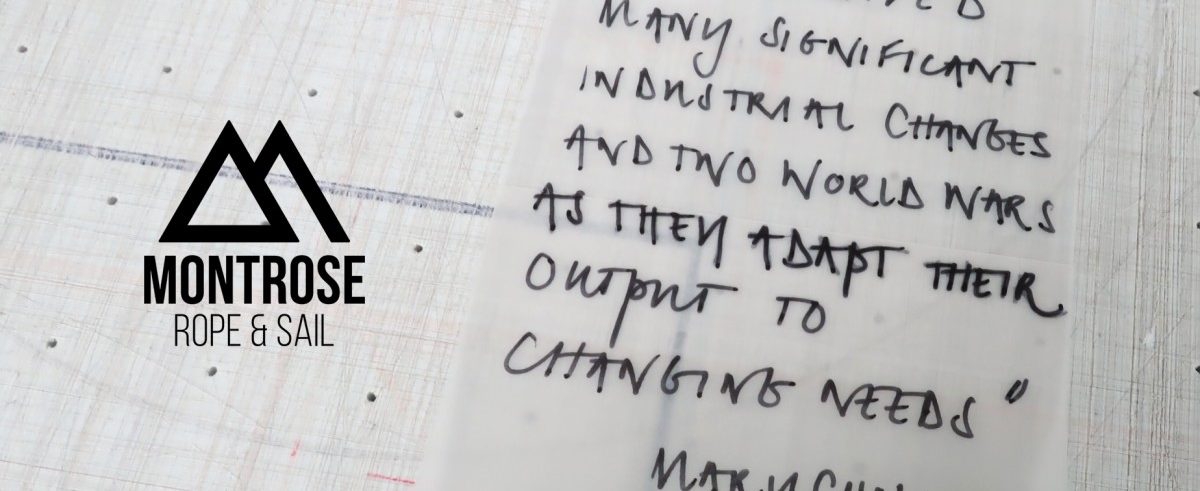 MONTROSE
ROPE & SAIL
MANY SIGNIFICANT
INDUSTRIAL CHANGES
AND TWO WORLD WARS
AS THEY ADAPT THEIR
OUTPUT TO
CHANGING NEEDS"
MARY